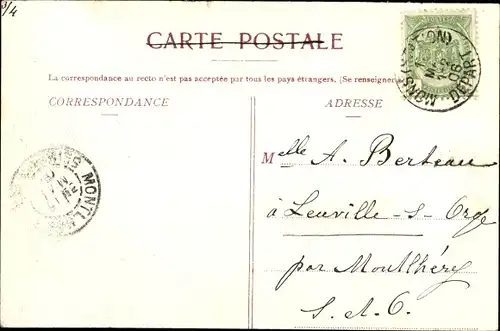 3/4
CARTE POSTALE
La correspondance au recto n'est pas acceptée par tous les pays étrangers. (Se renseigner
CORRESPONDANCE
ADRESSE
MONS (STATION)
DEPART
06
Melle A. Berteau
à Leuville-s-Orge
par Montlhéry
S. et O.
MONTL